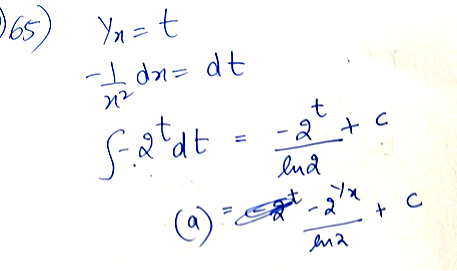 65) 1/x = t
-1/x² dx = dt
∫-2^t dt = -2^t/ln2 + c
(a) = -2^(1/x)/ln2 + c